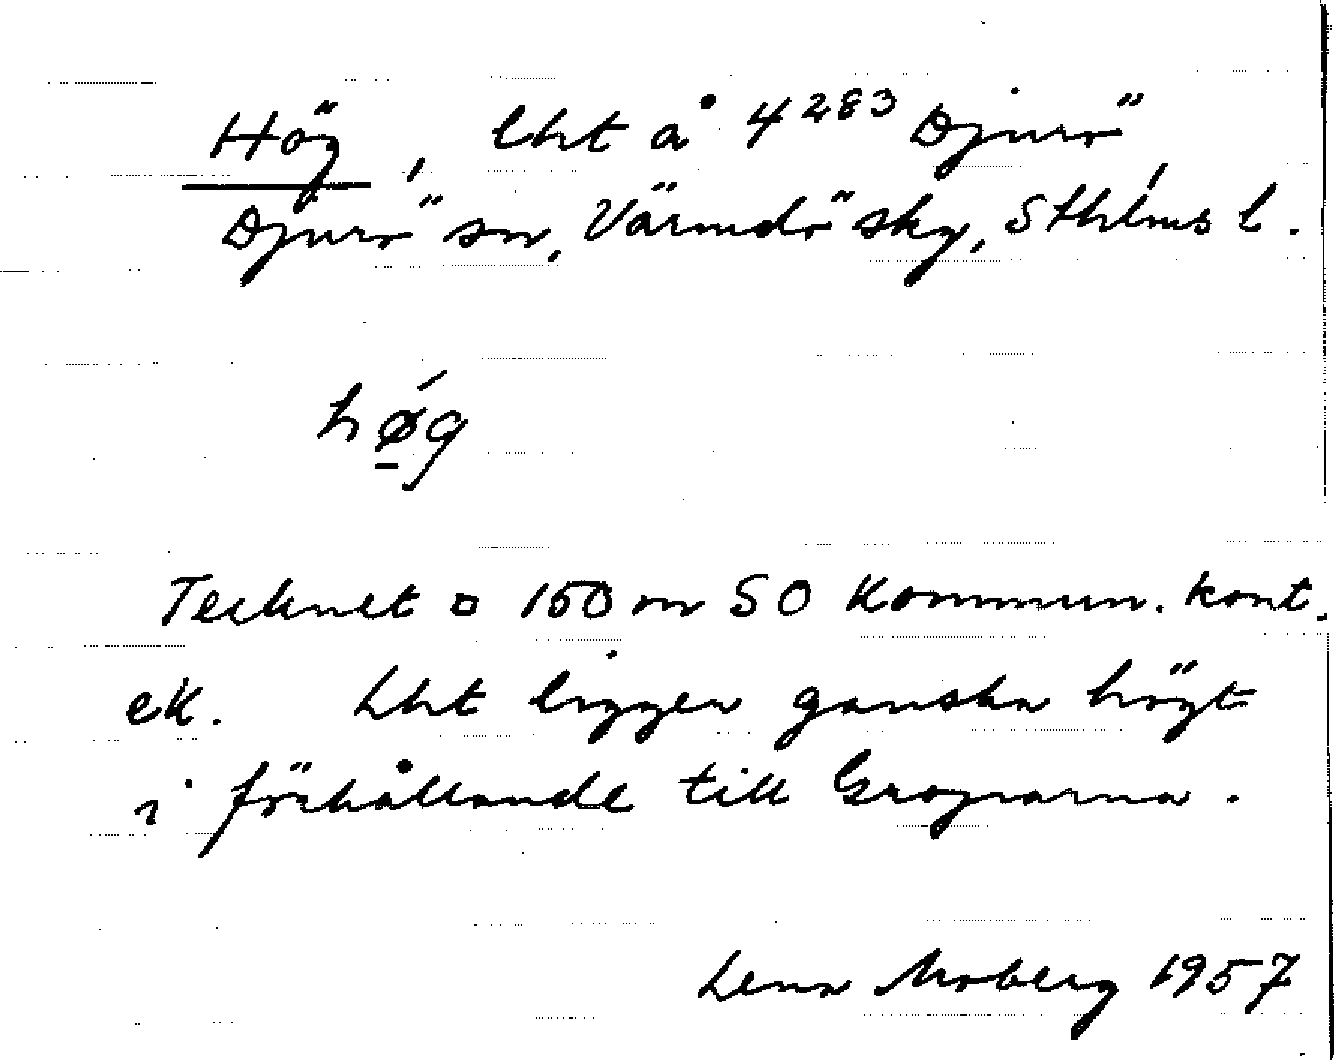 Hög, lht å 4²⁸³ Djurö
Djurö sn, Värmdö sky, Sthlms l.
hǿ̲g
Tecknet ¤ 150 m SO Kommun. kont.
ek. Lht ligger ganska högt
i förhållande till Groparna.
Lena Moberg 1957